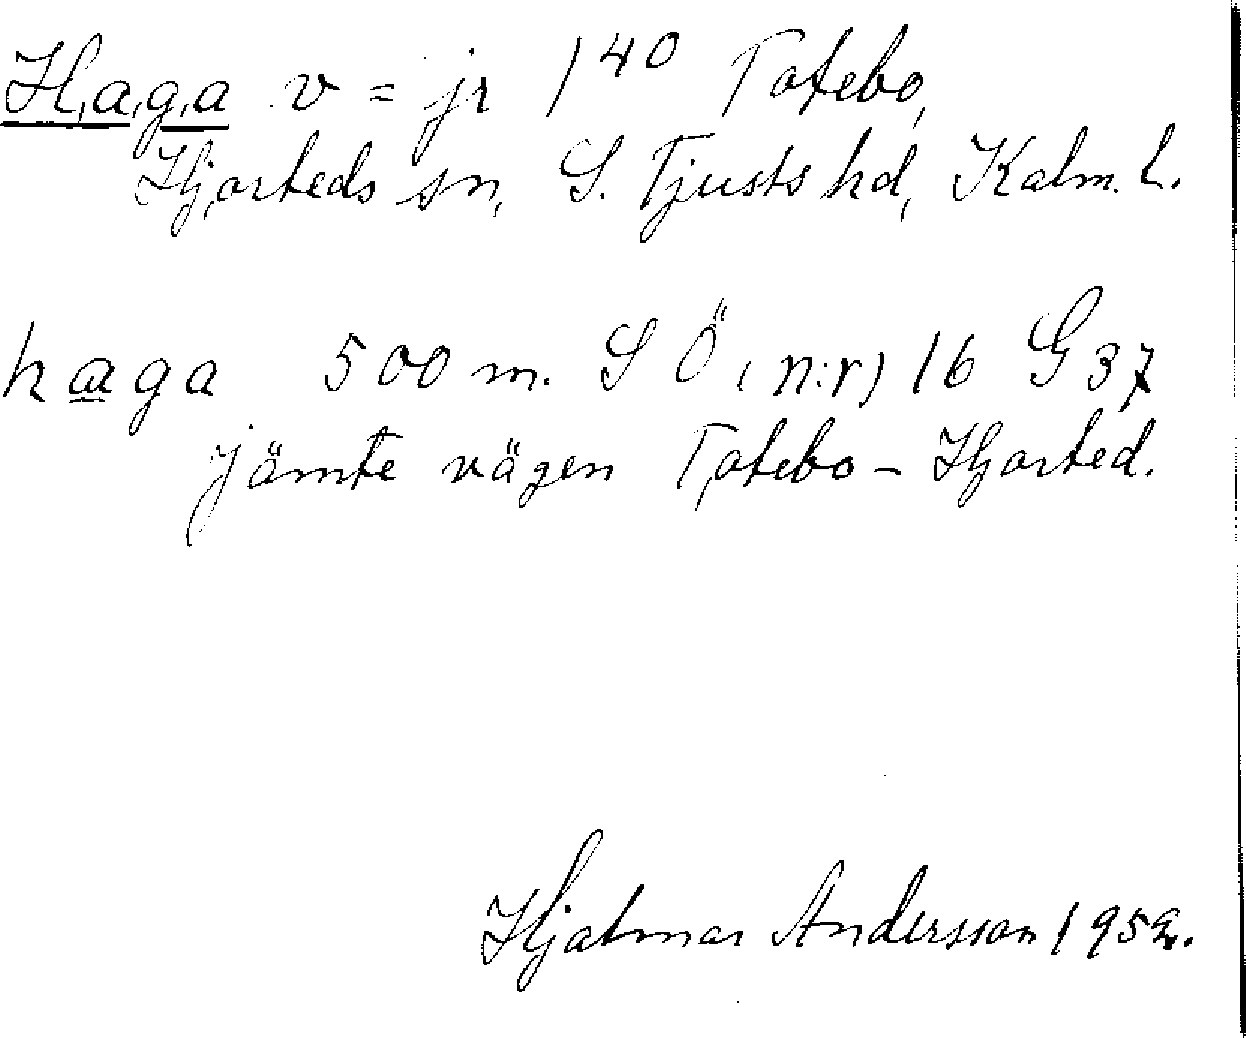 Haga v = jr 1⁴⁰ Totebo,
Hjorteds sn, S. Tjusts hd, Kalm. L.
haga 500 m. S Ö (n:r) 16 G 37
jämte vägen Totebo - Hjorted.
Hjalmar Andersson 1952.